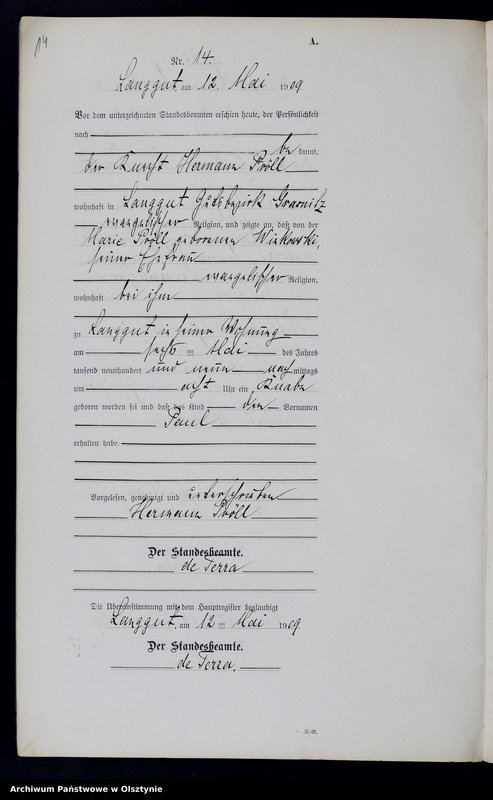 14
A.
Nr. 14.
Langgut, am 12. Mai 1909
Vor dem unterzeichneten Standesbeamten erschien heute, der Persönlichkeit
nach
bekannt,
der Knecht Hermann Pröll
wohnhaft in Langgut Gutsbezirk Grasnitz
evangelischer Religion, und zeigte an, daß von der
Marie Pröll geborenen Winkowski,
seiner Ehefrau
evangelischer Religion,
wohnhaft bei ihm
zu Langgut in seiner Wohnung
am sechs ten Mai des Jahres
tausend neunhundert und neun nachmittags
um acht Uhr ein Knabe
geboren worden sei und daß das Kind den Vornamen
Paul
erhalten habe.
Vorgelesen, genehmigt und unterschrieben
Hermann Pröll
Der Standesbeamte.
de Terra
Die Übereinstimmung mit dem Hauptregister beglaubigt
Langgut, am 12 ten Mai 1909
Der Standesbeamte.
de Terra.
R.-R.
Archiwum Państwowe w Olsztynie